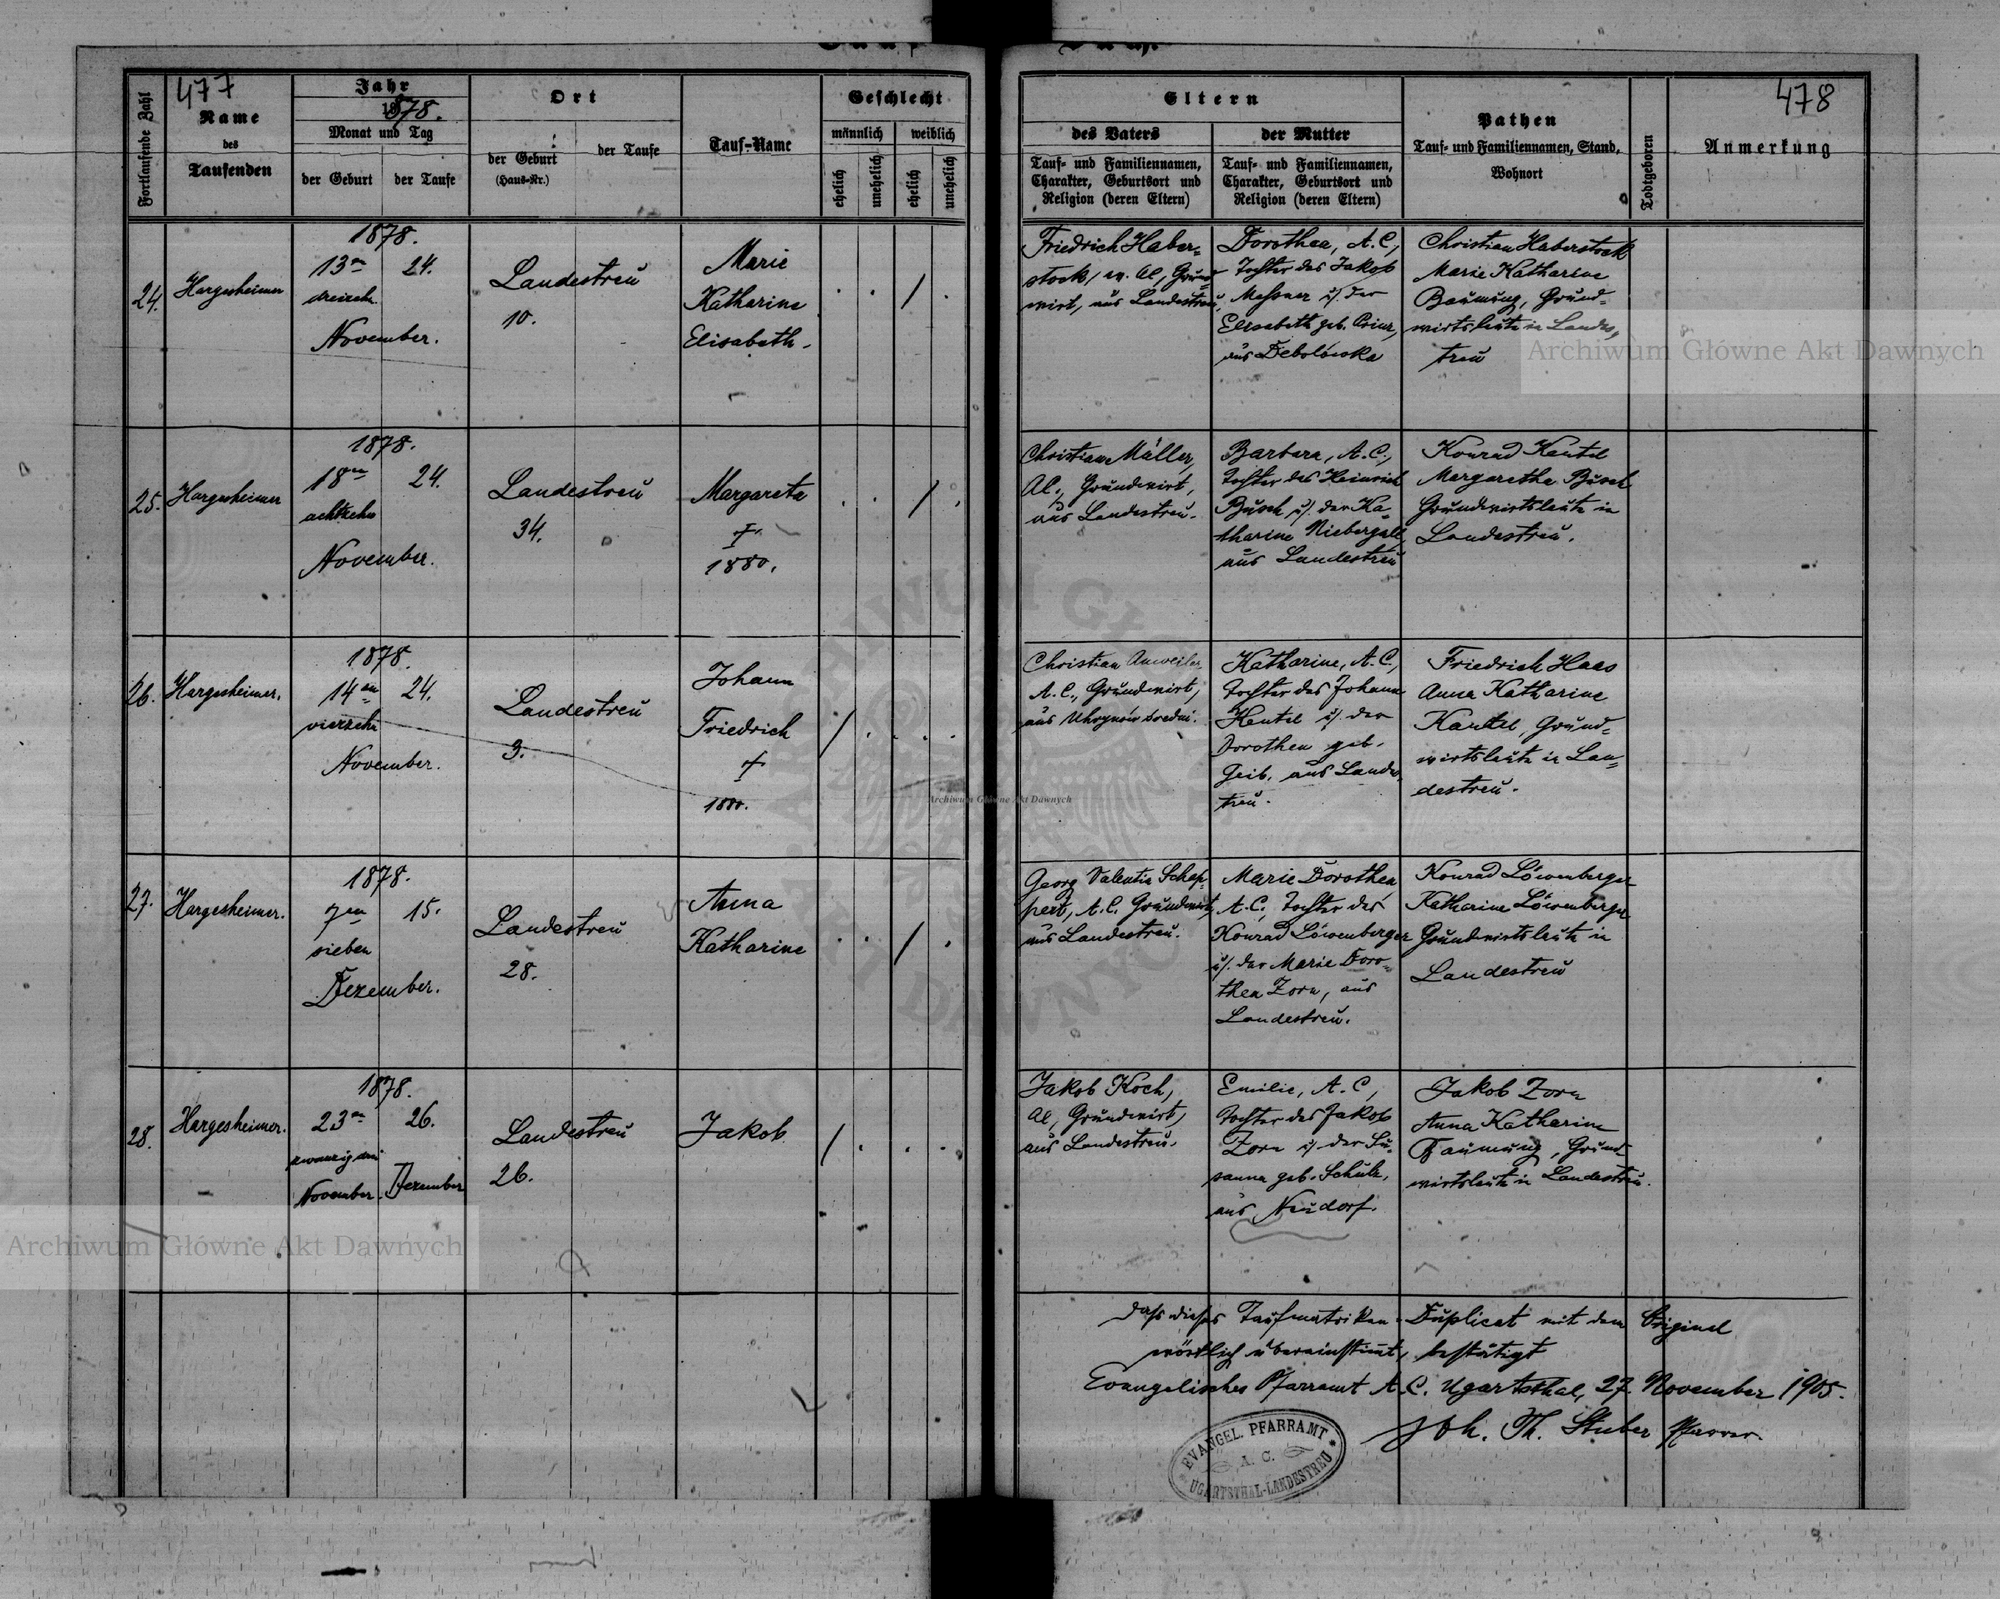 477
Fortlaufende Zahl
Name
des
Taufenden
Jahr
1878.
Monat und Tag
der Geburt
der Taufe
Ort
der Geburt
(Haus-Nr.)
der Taufe
Tauf-Name
Geschlecht
männlich
weiblich
ehelich
unehelich
ehelich
unehelich
Eltern
des Vaters
Tauf- und Familiennamen,
Charakter, Geburtsort und
Religion (deren Eltern)
der Mutter
Tauf- und Familiennamen,
Charakter, Geburtsort und
Religion (deren Eltern)
Pathen
Tauf- und Familiennamen, Stand,
Wohnort
Todtgeboren
478
Anmerkung
24.
Hargesheimer
1878.
13en 24.
dreizehn
November.
Landestreu
10.
Marie
Katharine
Elisabeth.
Friedrich Haber-
stock, ev. Al, Grund-
wirt, aus Landestreu,
Dorothea, A.C.,
Tochter des Jakob
Messner u/. der
Elisabeth geb.
aus Debolówka
Christian Haberstock
Marie Katharine
Bäumung, Grund-
wirtsleute in Landes,
treu
25.
Hargesheimer
1878.
18en 24.
achtzehn
November.
Landestreu
34.
Margareta
†
1880.
Christian Müller,
Al., Grundwirt,
aus Landestreu.
Barbara, A.C.,
Tochter des Heinrich
Busch u/. der Ka-
tharine Niebergall,
aus Landestreu
Konrad Kentel
Margaretha Busch
Grundwirtsleute in
Landestreu.
26.
Hargesheimer.
1878.
14en 24.
vierzehn
November.
Landestreu
3.
Johann
Friedrich
†
1880.
Christian Anweiler
A.C., Grundwirt,
aus Uhrynów średni.
Katharine, A.C.,
Tochter des Johann
Kentel u/. der
Dorothea geb.
Geib, aus Landes-
treu.
Friedrich Haas
Anna Katharine
Kentel, Grund-
wirtsleute in Lan-
destreu.
27.
Hargesheimer.
1878.
7en 15.
sieben
Dezember.
Landestreu
28.
Anna
Katharine
Georg Valentin Schep-
pert, A.C. Grundwirt,
aus Landestreu.
Marie Dorothea,
A.C., Tochter des
Konrad Löwenberger
u/. der Marie Doro-
thea Zorn, aus
Landestreu.
Konrad Löwenberger
Katharine Löwenberger
Grundwirtsleute in
Landestreu
28.
Hargesheimer.
1878.
23en 26.
zwanzig drei
November. Dezember
Landestreu
26.
Jakob
Jakob Koch,
Al, Grundwirt,
aus Landestreu.
Emilie, A.C.,
Tochter des Jakob
Zorn u/. der Su-
sanna geb. Schulz,
aus Neudorf.
Jakob Zorn
Anna Katharine
Bäumung, Grund-
wirtsleute in Landestreu.
Dass dieses Taufmatriken-Duplicat mit dem Original
wörtlich übereinstimmt, bestätigt
Evangelisches Pfarramt A.C. Ugartsthal, 27. November 1905.
Joh. Th. Stuber Pfarrer.
EVANGEL. PFARRAMT
A. C.
UGARTSTHAL-LANDESTREU
Archiwum Główne Akt Dawnych
Archiwum Główne Akt Dawnych
Archiwum Główne Akt Dawnych